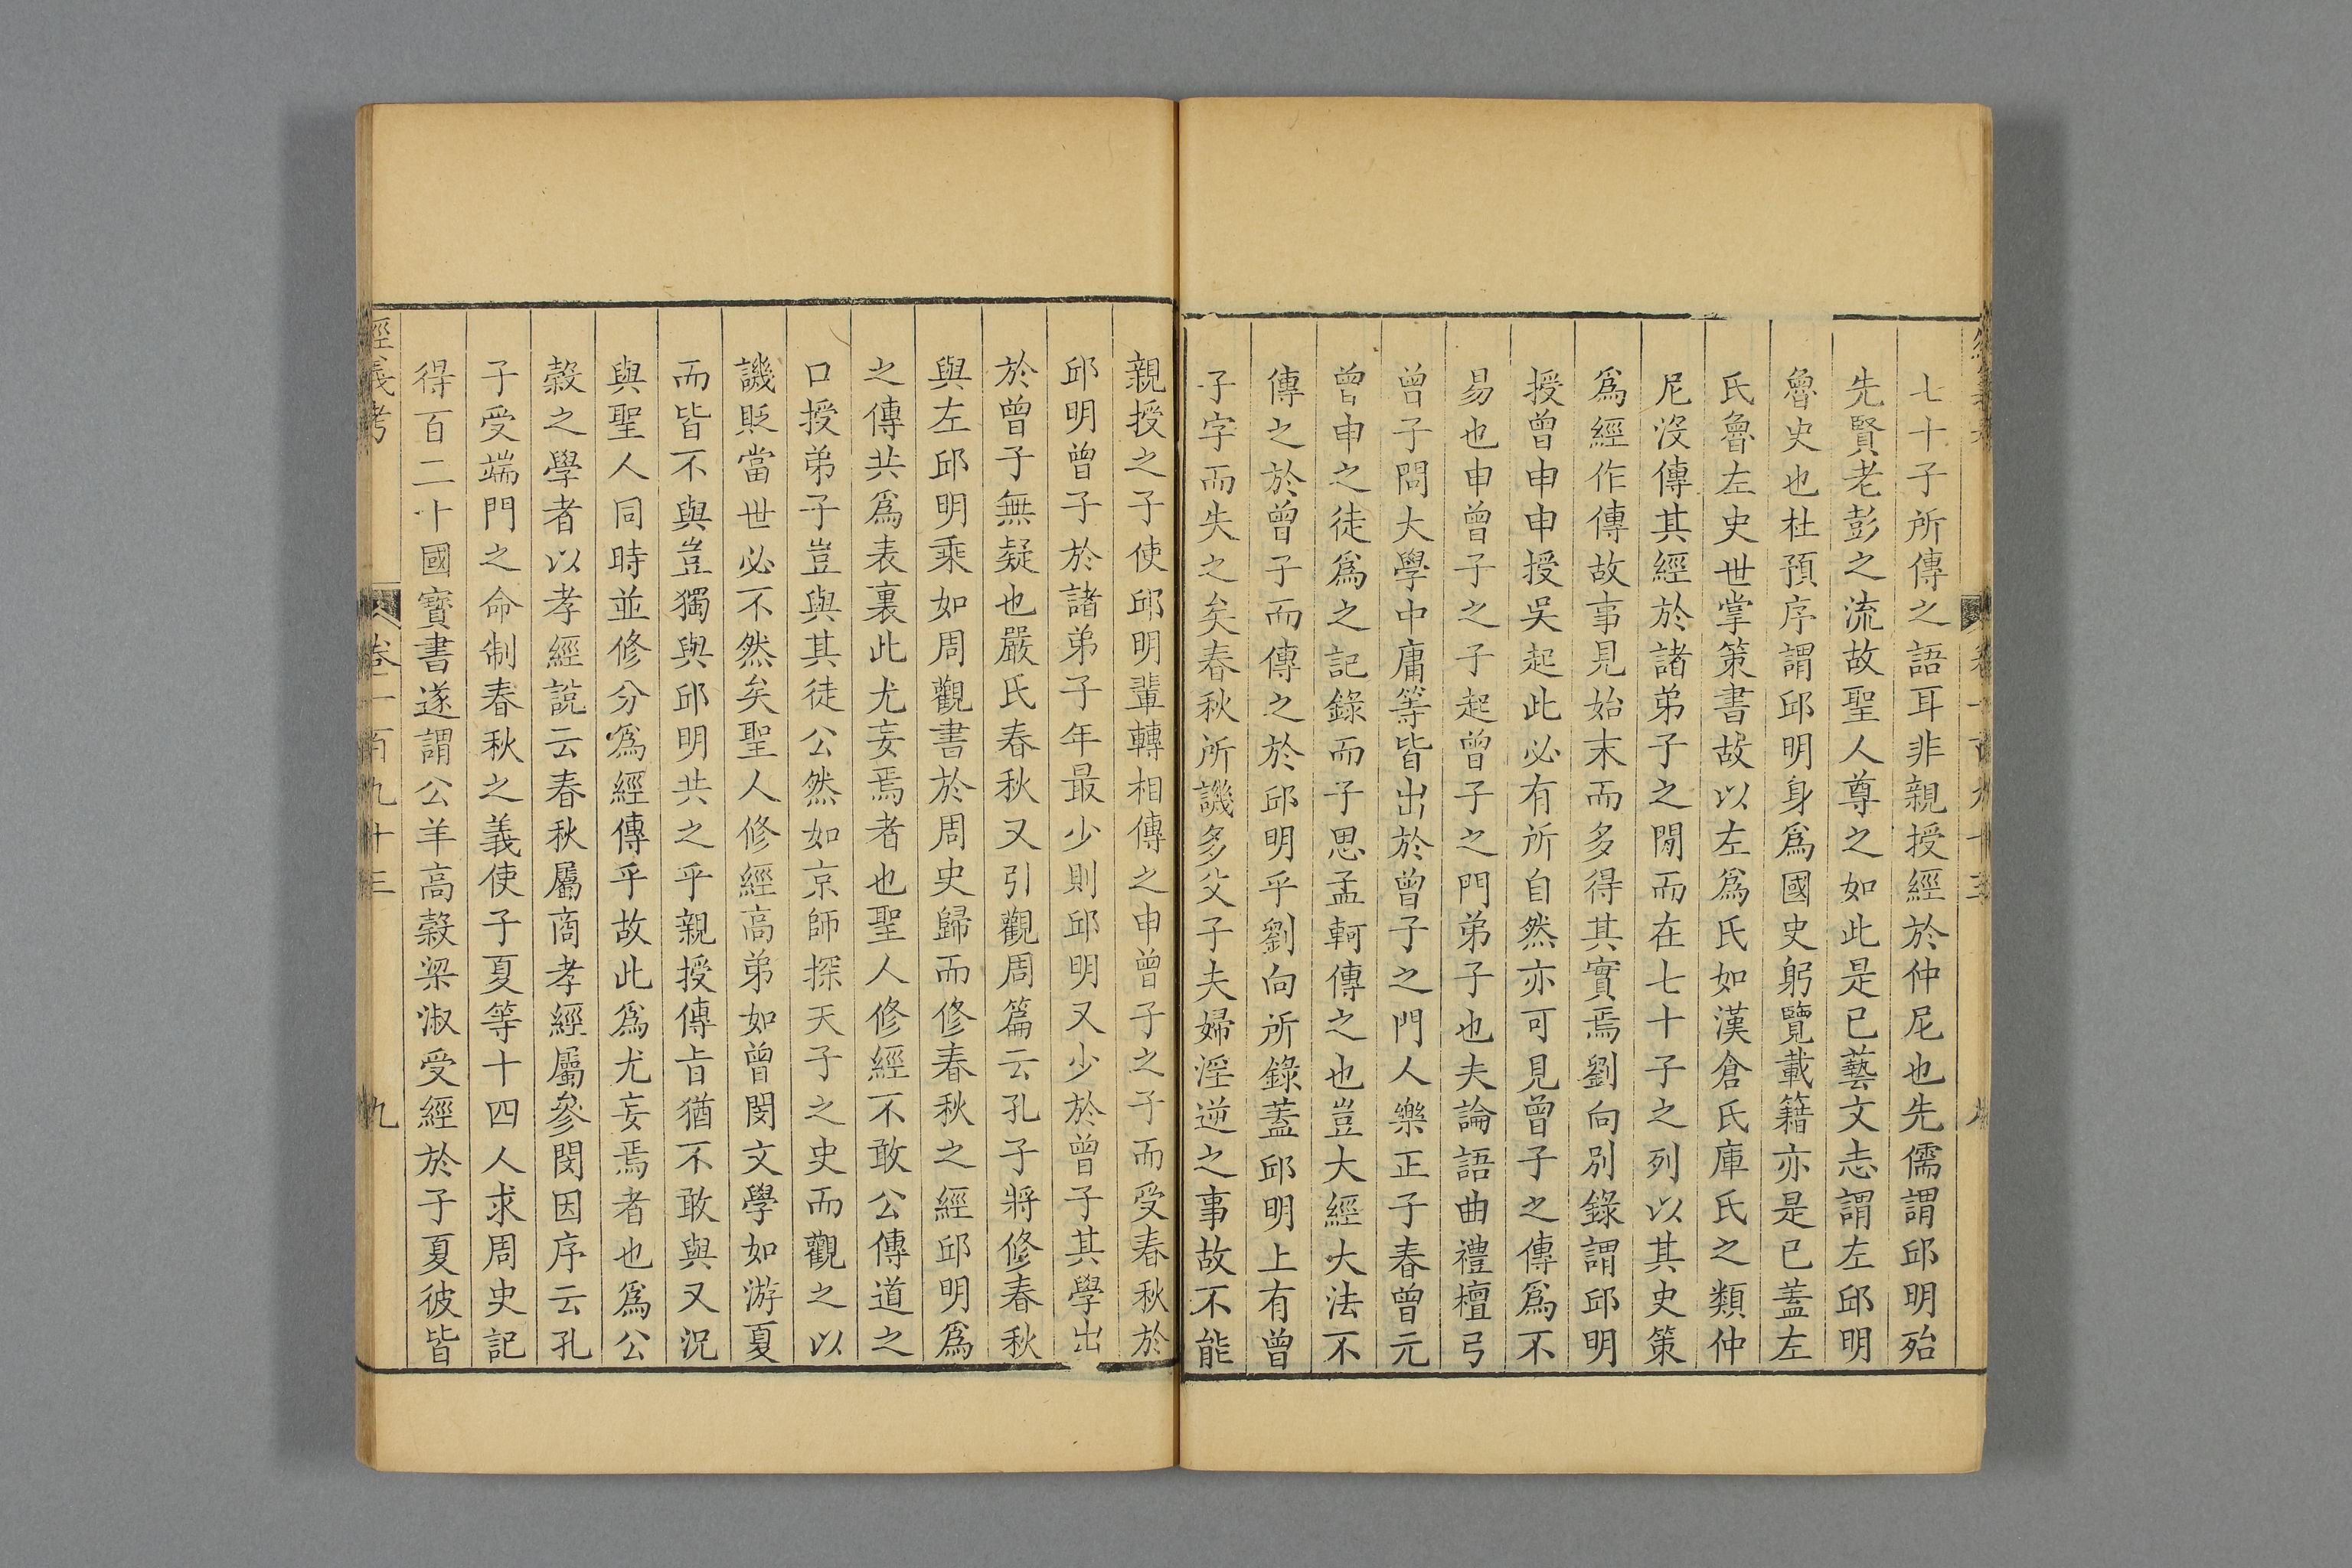 七十子所傳之語耳非親授經於仲尼也先儒謂邱明殆
先賢老彭之流故聖人尊之如此是已藝文志謂左邱明
魯史也杜預序謂邱明身爲國史躬覽載籍亦是已蓋左
氏魯左史世掌策書故以左爲氏如漢倉氏庫氏之類仲
尼沒傳其經於諸弟子之閒而在七十子之列以其史策
爲經作傳故事見始末而多得其實焉劉向別錄謂邱明
授曾申申授吳起此必有所自然亦可見曾子之傳爲不
易也申曾子之子起曾子之門弟子也夫論語曲禮檀弓
曾子問大學中庸等皆出於曾子之門人樂正子春曾元
曾申之徒爲之記錄而子思孟軻傳之也豈大經大法不
傳之於曾子而傳之於邱明乎劉向所錄蓋邱明上有曾
子字而失之矣春秋所譏多父子夫婦淫逆之事故不能
親授之子使邱明輩轉相傳之申曾子之子而受春秋於
邱明曾子於諸弟子年最少則邱明又少於曾子其學出
於曾子無疑也嚴氏春秋又引觀周篇云孔子將修春秋
與左邱明乘如周觀書於周史歸而修春秋之經邱明爲
之傳共爲表裏此尤妄焉者也聖人修經不敢公傳道之
口授弟子豈與其徒公然如京師探天子之史而觀之以
譏貶當世必不然矣聖人修經高弟如曾閔文學如游夏
而皆不與豈獨與邱明共之乎親授傳旨猶不敢與又況
與聖人同時並修分爲經傳乎故此爲尤妄焉者也爲公
穀之學者以孝經說云春秋屬商孝經屬參閔因序云孔
子受端門之命制春秋之義使子夏等十四人求周史記
得百二十國寶書遂謂公羊高穀梁淑受經於子夏彼皆
經義考 卷一百九十三 九